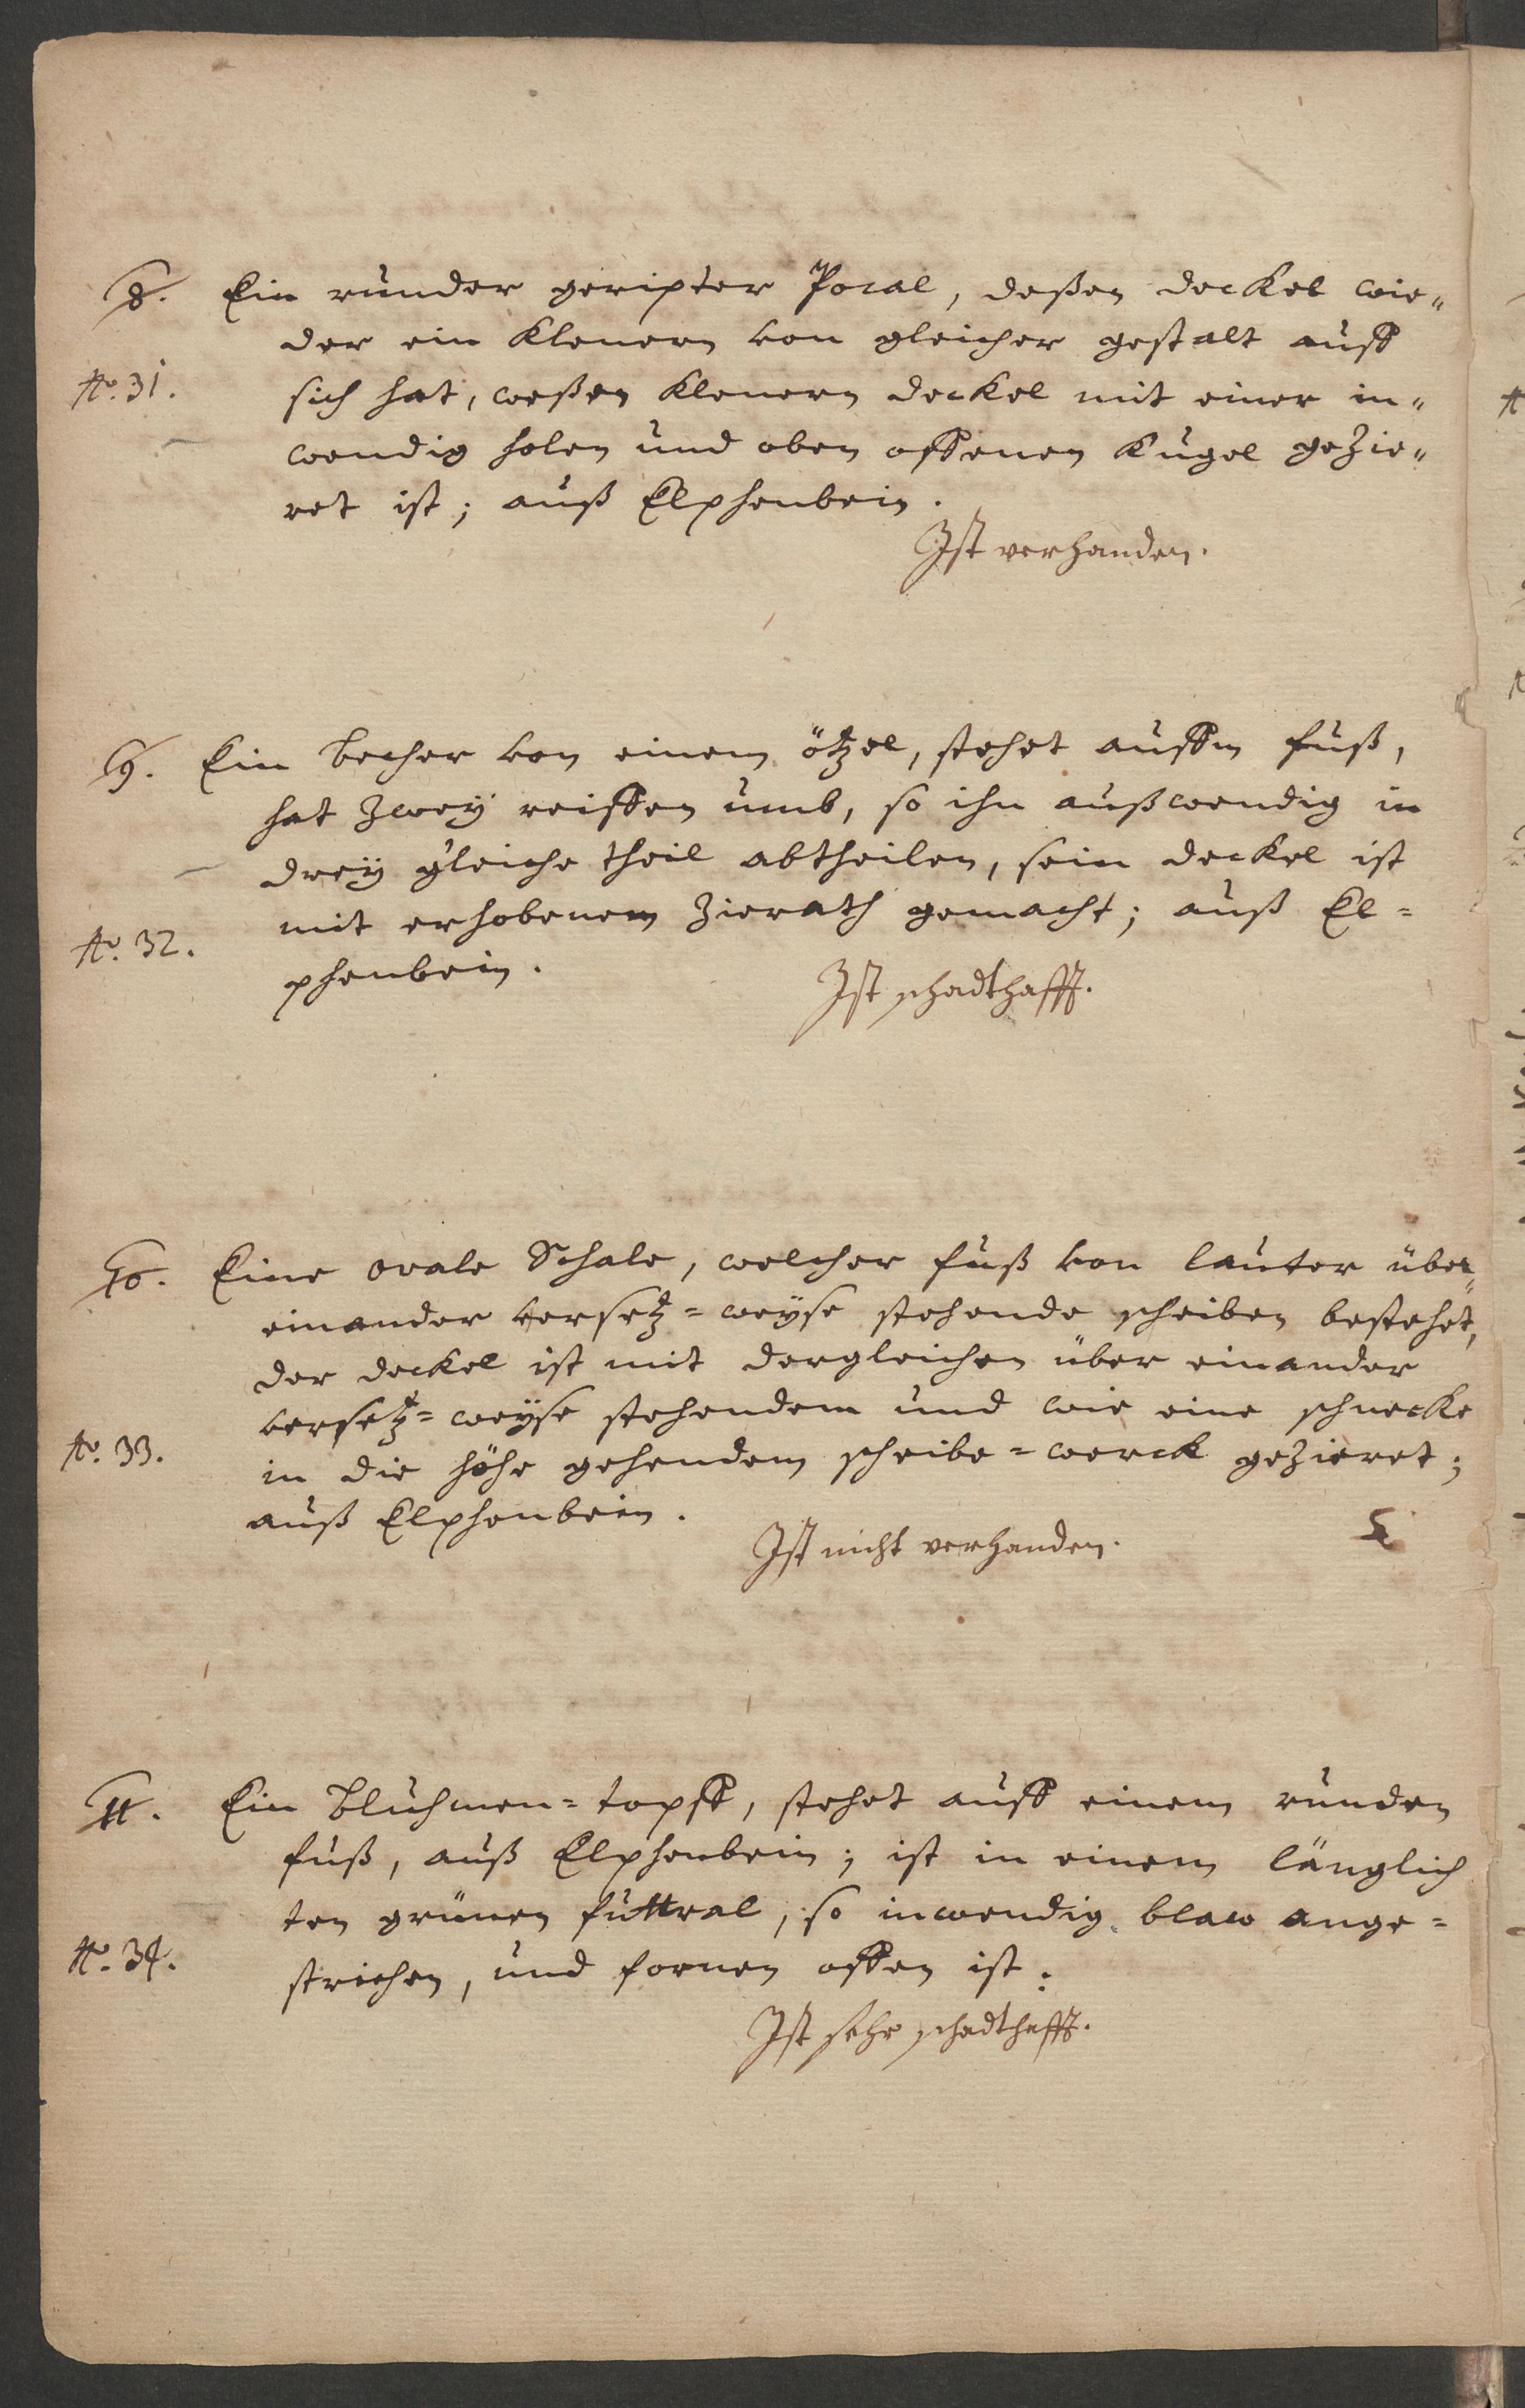 8. Ein runder geripter Pocal, deßen deckel wie„
der ein klenern von gleicher gestalt auff
No. 31.
sich hat, weßen klenern deckel mit einer in„
wendig holen und oben offenen Kugel gezie„
ret ist; auß Elphenbein.
Ist verhanden.
9. Ein becher von einem ötzel, stehet auffm fuß,
hat zwey reiffen umb, so ihn außwendig in
drey gleiche theil abtheilen, sein deckel ist
mit erhobenem Zierath gemacht; auß El=
No. 32.
phenbein.
Ist schadthafft.
10. Eine ovale Schale, welcher fuß von lauter über„
einander versetz=weyse stehende scheiben bestehet,
der deckel ist mit dergleichen über einander
versetz=weyse stehendem und wie eine schnecke
No. 33.
in die höhe gehendem scheibe=werck gezieret;
auß Elphenbein.
Ist nicht verhanden.
11. Ein bluhmen=topff, stehet auff einem runden
fuß, auß Elphenbein; ist in einem länglich
ten grünen futtral, so inwendig blaw ange=
No. 34.
strichen, und fornen offen ist.
Ist sehr schadthafft.